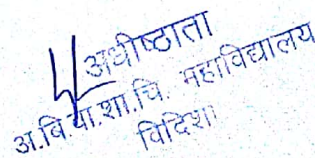 अधीष्ठाता
अ.बि.वा.शा.चि. महाविद्यालय
विदिशा